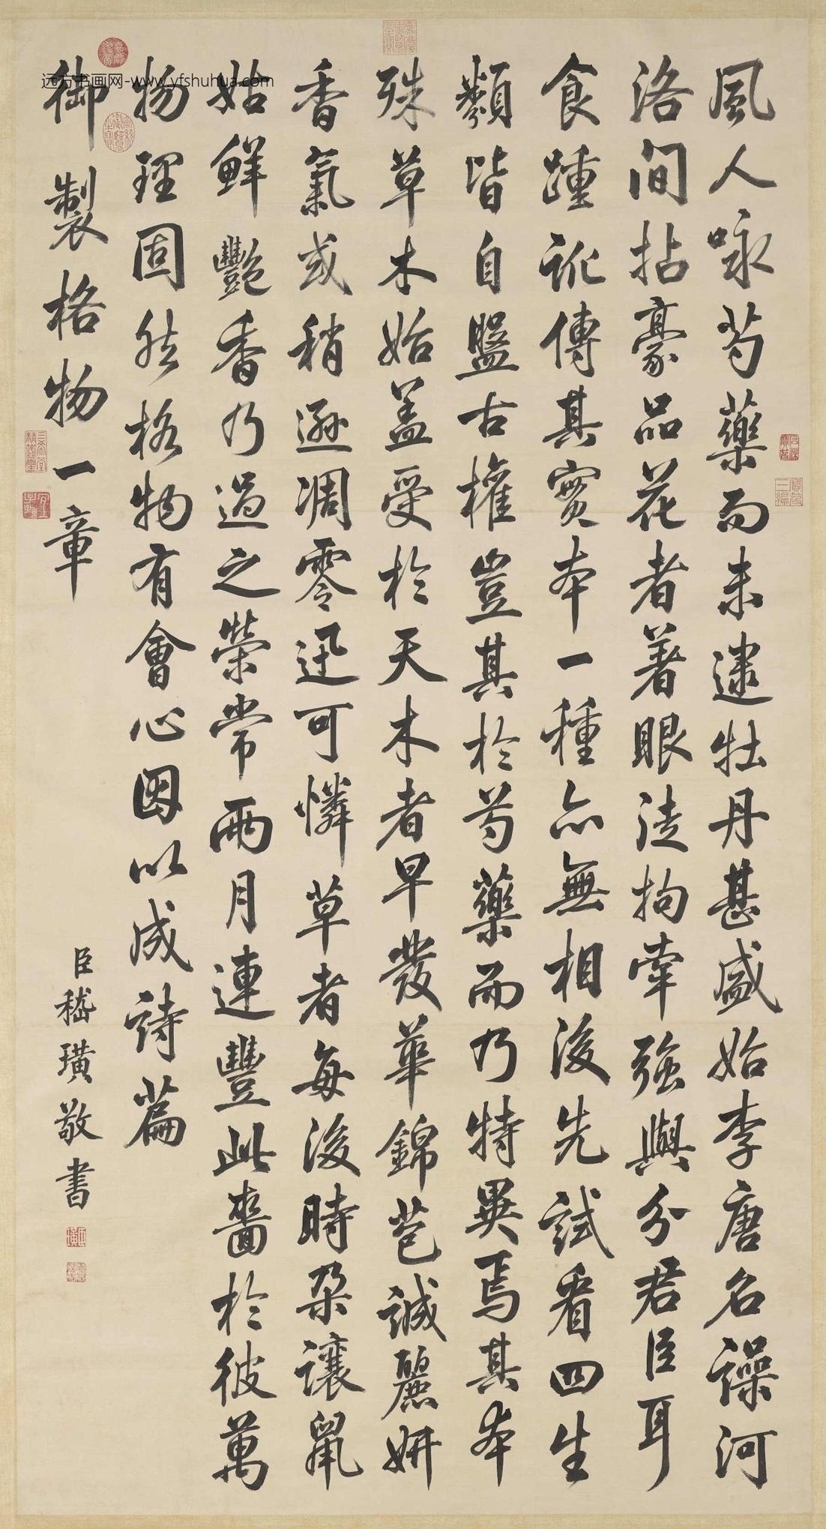 远方书画网-www.yfshuhua.com
風人咏芍藥而未逮牡丹甚盛始李唐名譟河
洛間拈豪品花者著眼徒拘牽強與分君臣耳
食踵訛傳其實本一種亦無相後先試看四生
類皆自盤古權豈其於芍藥而乃特異焉其本
殊草木始盖受於天木者早發華錦苞誠麗妍
香氣或稍遜凋零迅可憐草者每後時朵讓鼠
姑鮮豔香乃過之榮常兩月連豐此嗇於彼萬
物理固然格物有會心因以成詩篇
御製格物一章
臣嵇璜敬書